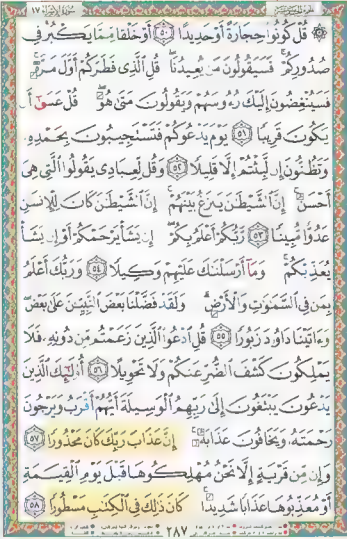 سورة الإسراء ١٧
۞ قُلْ كُونُوا۟ حِجَارَةً أَوْ حَدِيدًا ٥٠ أَوْ خَلْقًا مِّمَّا يَكْبُرُ فِى
صُدُورِكُمْ ۚ فَسَيَقُولُونَ مَن يُعِيدُنَا ۖ قُلِ ٱلَّذِى فَطَرَكُمْ أَوَّلَ مَرَّةٍ ۚ
فَسَيُنْغِضُونَ إِلَيْكَ رُءُوسَهُمْ وَيَقُولُونَ مَتَىٰ هُوَ ۖ قُلْ عَسَىٰٓ أَن
يَكُونَ قَرِيبًا ٥١ يَوْمَ يَدْعُوكُمْ فَتَسْتَجِيبُونَ بِحَمْدِهِۦ
وَتَظُنُّونَ إِن لَّبِثْتُمْ إِلَّا قَلِيلًا ٥٢ وَقُل لِّعِبَادِى يَقُولُوا۟ ٱلَّتِى هِىَ
أَحْسَنُ ۚ إِنَّ ٱلشَّيْطَٰنَ يَنزَغُ بَيْنَهُمْ ۚ إِنَّ ٱلشَّيْطَٰنَ كَانَ لِلْإِنسَٰنِ
عَدُوًّا مُّبِينًا ٥٣ رَّبُّكُمْ أَعْلَمُ بِكُمْ ۖ إِن يَشَأْ يَرْحَمْكُمْ أَوْ إِن يَشَأْ
يُعَذِّبْكُمْ ۚ وَمَآ أَرْسَلْنَٰكَ عَلَيْهِمْ وَكِيلًا ٥٤ وَرَبُّكَ أَعْلَمُ
بِمَن فِى ٱلسَّمَٰوَٰتِ وَٱلْأَرْضِ ۗ وَلَقَدْ فَضَّلْنَا بَعْضَ ٱلنَّبِيِّۦنَ عَلَىٰ بَعْضٍ ۖ
وَءَاتَيْنَا دَاوُۥدَ زَبُورًا ٥٥ قُلِ ٱدْعُوا۟ ٱلَّذِينَ زَعَمْتُم مِّن دُونِهِۦ فَلَا
يَمْلِكُونَ كَشْفَ ٱلضُّرِّ عَنكُمْ وَلَا تَحْوِيلًا ٥٦ أُو۟لَٰٓئِكَ ٱلَّذِينَ
يَدْعُونَ يَبْتَغُونَ إِلَىٰ رَبِّهِمُ ٱلْوَسِيلَةَ أَيُّهُمْ أَقْرَبُ وَيَرْجُونَ
رَحْمَتَهُۥ وَيَخَافُونَ عَذَابَهُۥٓ ۚ إِنَّ عَذَابَ رَبِّكَ كَانَ مَحْذُورًا ٥٧
وَإِن مِّن قَرْيَةٍ إِلَّا نَحْنُ مُهْلِكُوهَا قَبْلَ يَوْمِ ٱلْقِيَٰمَةِ
أَوْ مُعَذِّبُوهَا عَذَابًا شَدِيدًا ۚ كَانَ ذَٰلِكَ فِى ٱلْكِتَٰبِ مَسْطُورًا ٥٨
٢٨٧